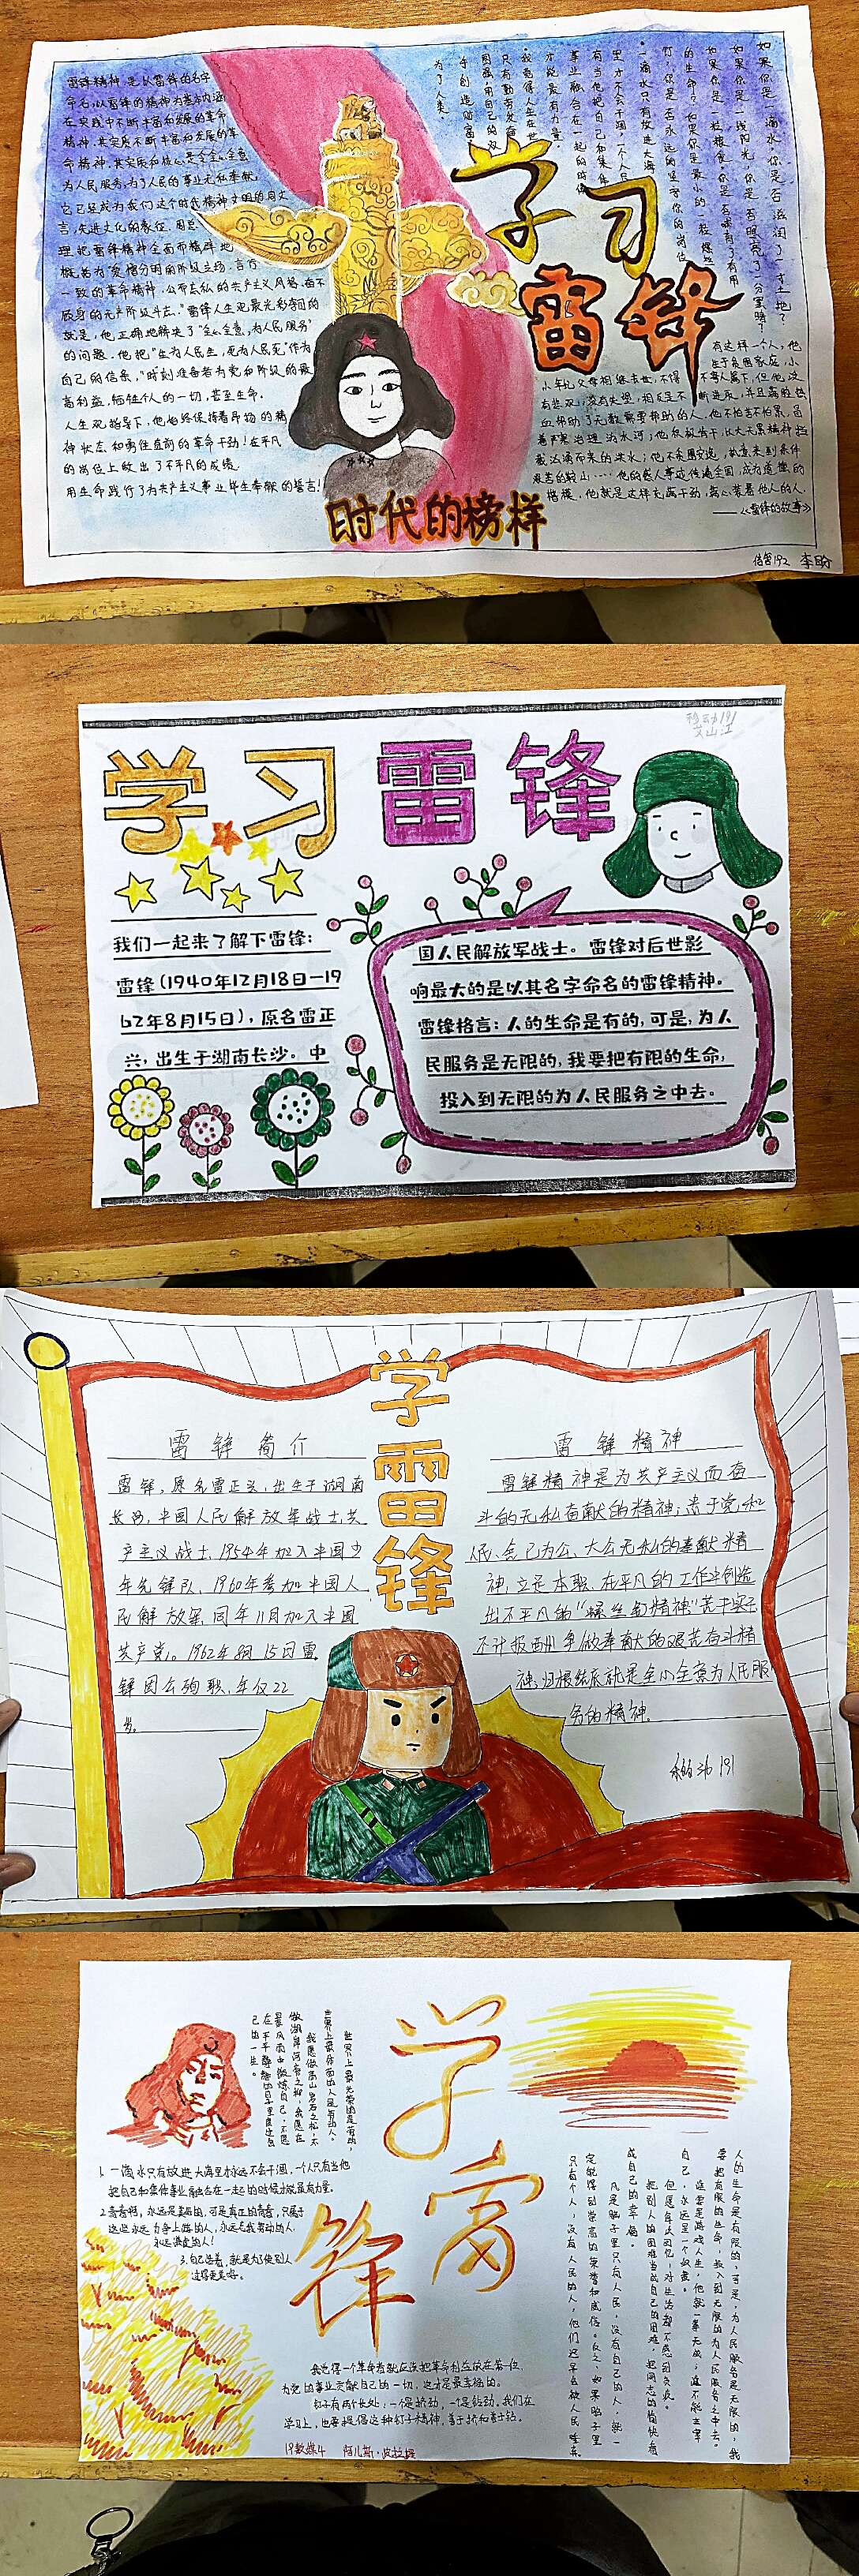 学习
雷锋
时代的榜样
雷锋精神,是以雷锋的名字
命名,以雷锋的精神为基本内涵
在实践中不断丰富和发展的革命
精神,其实质不断丰富和发展的革
命精神,其实质和核心是全心全意
为人民服务,为了人民的事业无私奉献
它已经成为我们这个时代精神文明的同义
言,先进文化的表征。周总
理把雷锋精神全面而精辟地
概括为"爱憎分明的阶级立场、言行
一致的革命精神、公而忘私的共产主义风格、奋不
顾身的无产阶级斗志。"雷锋人生观最光彩夺目的
就是,他正确地解决了"全心全意,为人民服务"
的问题。他把"生为人民生,死为人民死"作为
自己的信条,"时刻准备着为党和阶级的最
高利益,牺牲个人的一切,甚至生命。
人生观指导下,他始终保持着昂扬的精
神状态和勇往直前的革命干劲!在平凡
的岗位上做出了不平凡的成绩。
用生命践行了为共产主义事业毕生奉献的誓言!
如果你是一滴水,你是否滋润了一寸土地?
如果你是一线阳光,你是否照亮了一分黑暗?
如果你是一粒粮食,你是否哺育了有用
的生命?如果你是最小的一粒螺丝
钉,你是否永远的坚守你的岗位
一滴水只有放进大海
里才不会干涸,一个人只
有当他把自己和集体
事业融合在一起的时候
才能最有力量。
我觉得人生在世
只有勤劳发奋
图强,用自己的双
手创造财富
为了人类
有这样一个人,他
生于贫困家庭,小
小年纪父母相继去世,不得不寄人篱下,但他没
——《雷锋的故事》
信管192 李盼
学习雷锋
我们一起来了解下雷锋:
雷锋(1940年12月18日—19
62年8月15日),原名雷正
兴,出生于湖南长沙。中
国人民解放军战士。雷锋对后世影
响最大的是以其名字命名的雷锋精神。
雷锋格言:人的生命是有的,可是,为人
民服务是无限的,我要把有限的生命,
投入到无限的为人民服务之中去。
学雷锋
雷锋简介
雷锋,原名雷正兴,出生于湖南
长沙,中国人民解放军战士,共
产主义战士,1954年加入中国少
年先锋队,1960年参加中国人
民解放军,同年11月加入中国
共产党。1962年8月15日雷
锋因公殉职,年仅22
岁。
雷锋精神
雷锋精神是为共产主义而奋
斗的无私奋献的精神;忠于党和
人民、舍己为公、大公无私的奉献精
神;立足本职、在平凡的工作中创造
出不平凡的"螺丝钉精神"苦干实干
不计报酬、争做奉献的艰苦奋斗精
神,归根结底就是全心全意为人民服
务的精神。
学雷锋
世界上最光荣的是劳动,
世界上最体面的人是劳动人。
我愿做高山岩石之松,不
做湖岸河旁之柳,我愿在
暴风雨中锻炼自己,不愿
在平平静静的日子里度过自
己的一生。
1. 一滴水只有放进大海里才永远不会干涸,一个人只有当他
把自己和集体事业融合在一起的时候才能最有力量。
2. 青春啊,永远是美好的,可是真正的青春,只属于
这些永远力争上游的人,永远忘我劳动的人,
永远谦虚的人!
3. 自己活着,就是为了使别人
过得更美好。
人的生命是有限的,可是,为人民服务是无限的,我
要把有限的生命,投入到无限的为人民服务之中去。
谁要是游戏人生,他就一事无成,谁不能主宰
自己,永远是一个奴隶。
但愿每次回忆,对生活都不感到负疚。
把别人的困难当成自己的困难,把同志的愉快看
成自己的幸福。
凡是脑子里只有人民,没有自己的人,就一
定能得到崇高的荣誉和威信。反之,如果脑子里
只有个人,没有人民的人,他们迟早会被人民唾弃。
我觉得一个革命者就应该把革命利益放在第一位,
为党的事业贡献自己的一切,这才是最幸福的。
钉子有两个长处:一个是挤劲,一个是钻劲。我们在
学习上,也要提倡这种钉子精神,善于挤和善于钻。